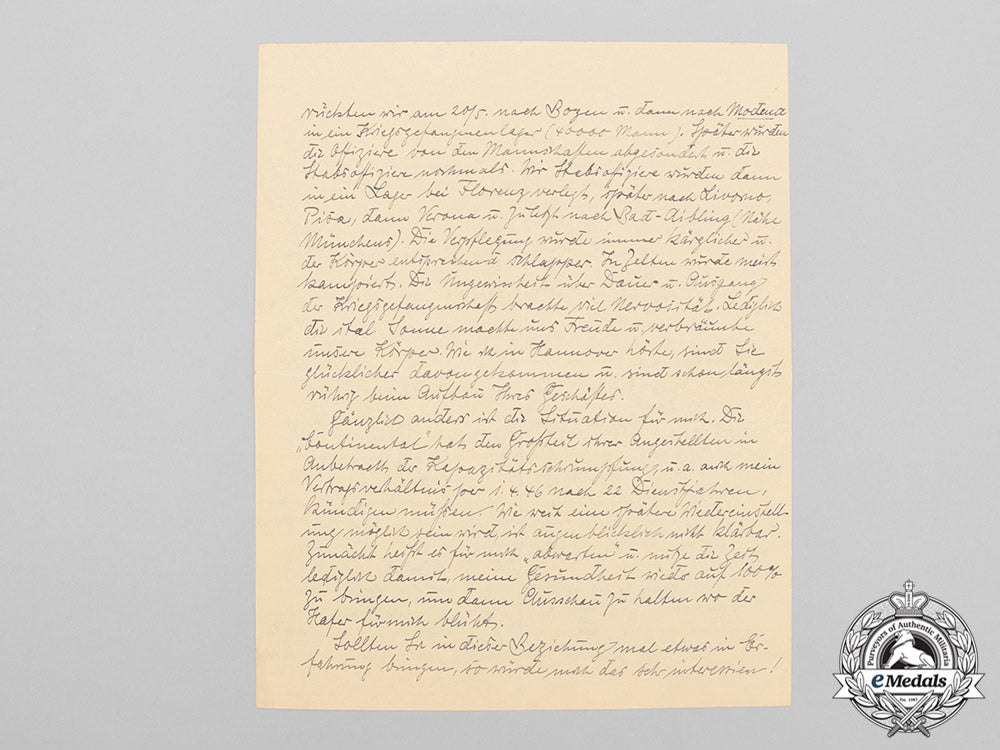 rückten wir am 20/5. nach Bozen u. dann nach Modena
in ein Kriegsgefangenenlager (40000 Mann). Später wurden
die Offiziere von den Mannschaften abgesondert u. die
Stabsoffiziere nochmals. Wir Stabsoffiziere wurden dann
in ein Lager bei Florenz verlegt, später nach Livorno,
Pisa, dann Verona u. zuletzt nach Bad-Aibling (Nähe
Münchens). Die Verpflegung wurde immer kärglicher u.
der Körper entsprechend schlapper. In Zelten wurde meist
kampiert. Die Ungewissheit über Dauer u. Ausgang
der Kriegsgefangenschaft brachte viel Nervosität. Lediglich
die ital Sonne machte uns Freude u. verbräunte
unsere Körper. Wie ich in Hannover hörte, sind Sie
glücklicher davongekommen u. sind schon längst
rührig beim Aufbau Ihres Geschäftes.
Gänzlich anders ist die Situation für mich. Die
„Continental" hat den Großteil ihrer Angestellten in
Anbetracht der Kapazitätsschrumpfung, u. a. auch mein
Vertragsverhältnis per 1.4.46 nach 22 Dienstjahren,
kündigen müßen. Wie weit eine spätere Wiedereinstell-
ung möglich sein wird, ist augenblicklich nicht klärbar.
Zunächst heißt es für mich „abwarten" u. nütze die Zeit
lediglich damit, meine Gesundheit wieder auf 100%
zu bringen, um dann Ausschau zu halten wo der
Hafer für mich blüht.
Sollten Sie in dieser Beziehung mal etwas in Er-
fahrung bringen, so würde mich das sehr interessieren!
Purveyors of Authentic Militaria
eMedals
Est. 1981